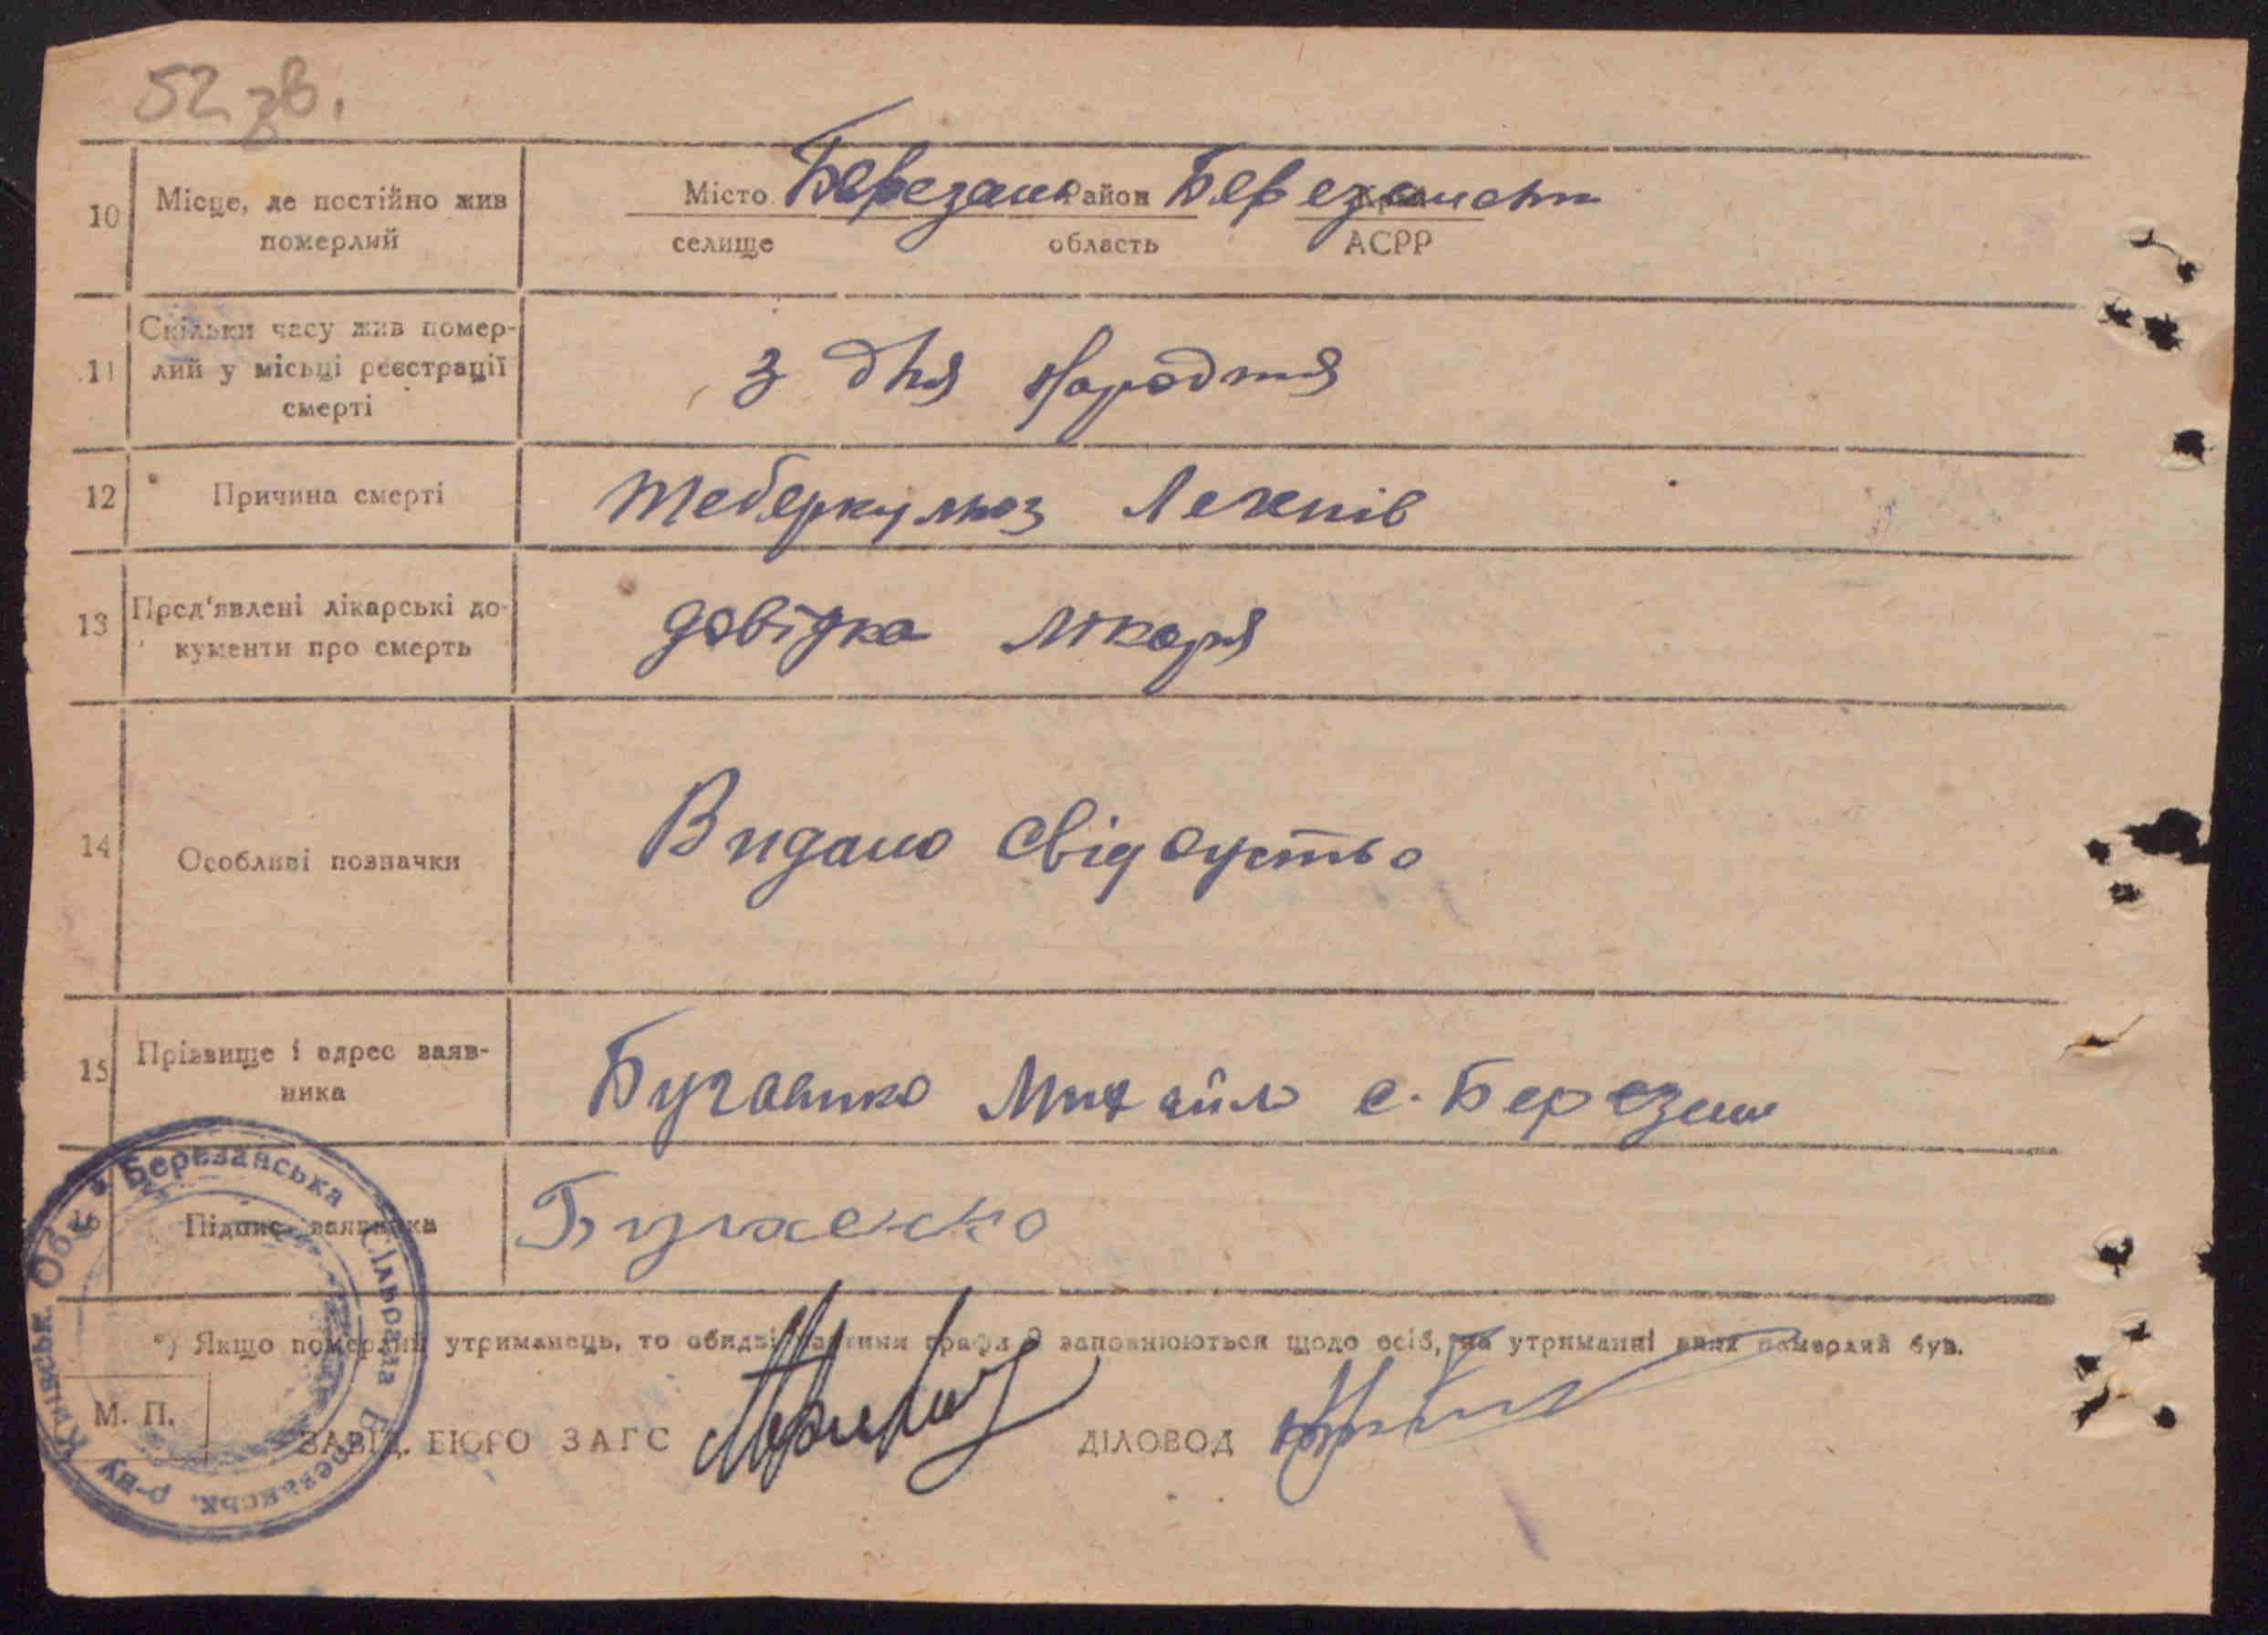 52 зв.
10 Місце, де постійно жив померлий
Місто Березань Район Березански Край
селище область АСРР
11 Скільки часу жив помер-
лий у місьці реєстрації
смерті
з дня народтя
12 Причина смерті
теберкульоз Легенів
13 Пред'явлені лікарські до-
кументи про смерть
довідка лікаря
14 Особливі позначки
Видано свідоцтьо
15 Прізвище і адрес заяв-
ника
Бугаенко Михайло с. Березань
16 Підпис заявника
Бугаенко
*) Якщо померлий утриманець, то обидві частини графи 9 заповнюються щодо осіб, на утриманні яких померлий був.
М. П.
ЗАВІД. БЮРО ЗАГС
ДІЛОВОД
Березанська Сільрада Березанськ. р-ну Київськ. Обл.